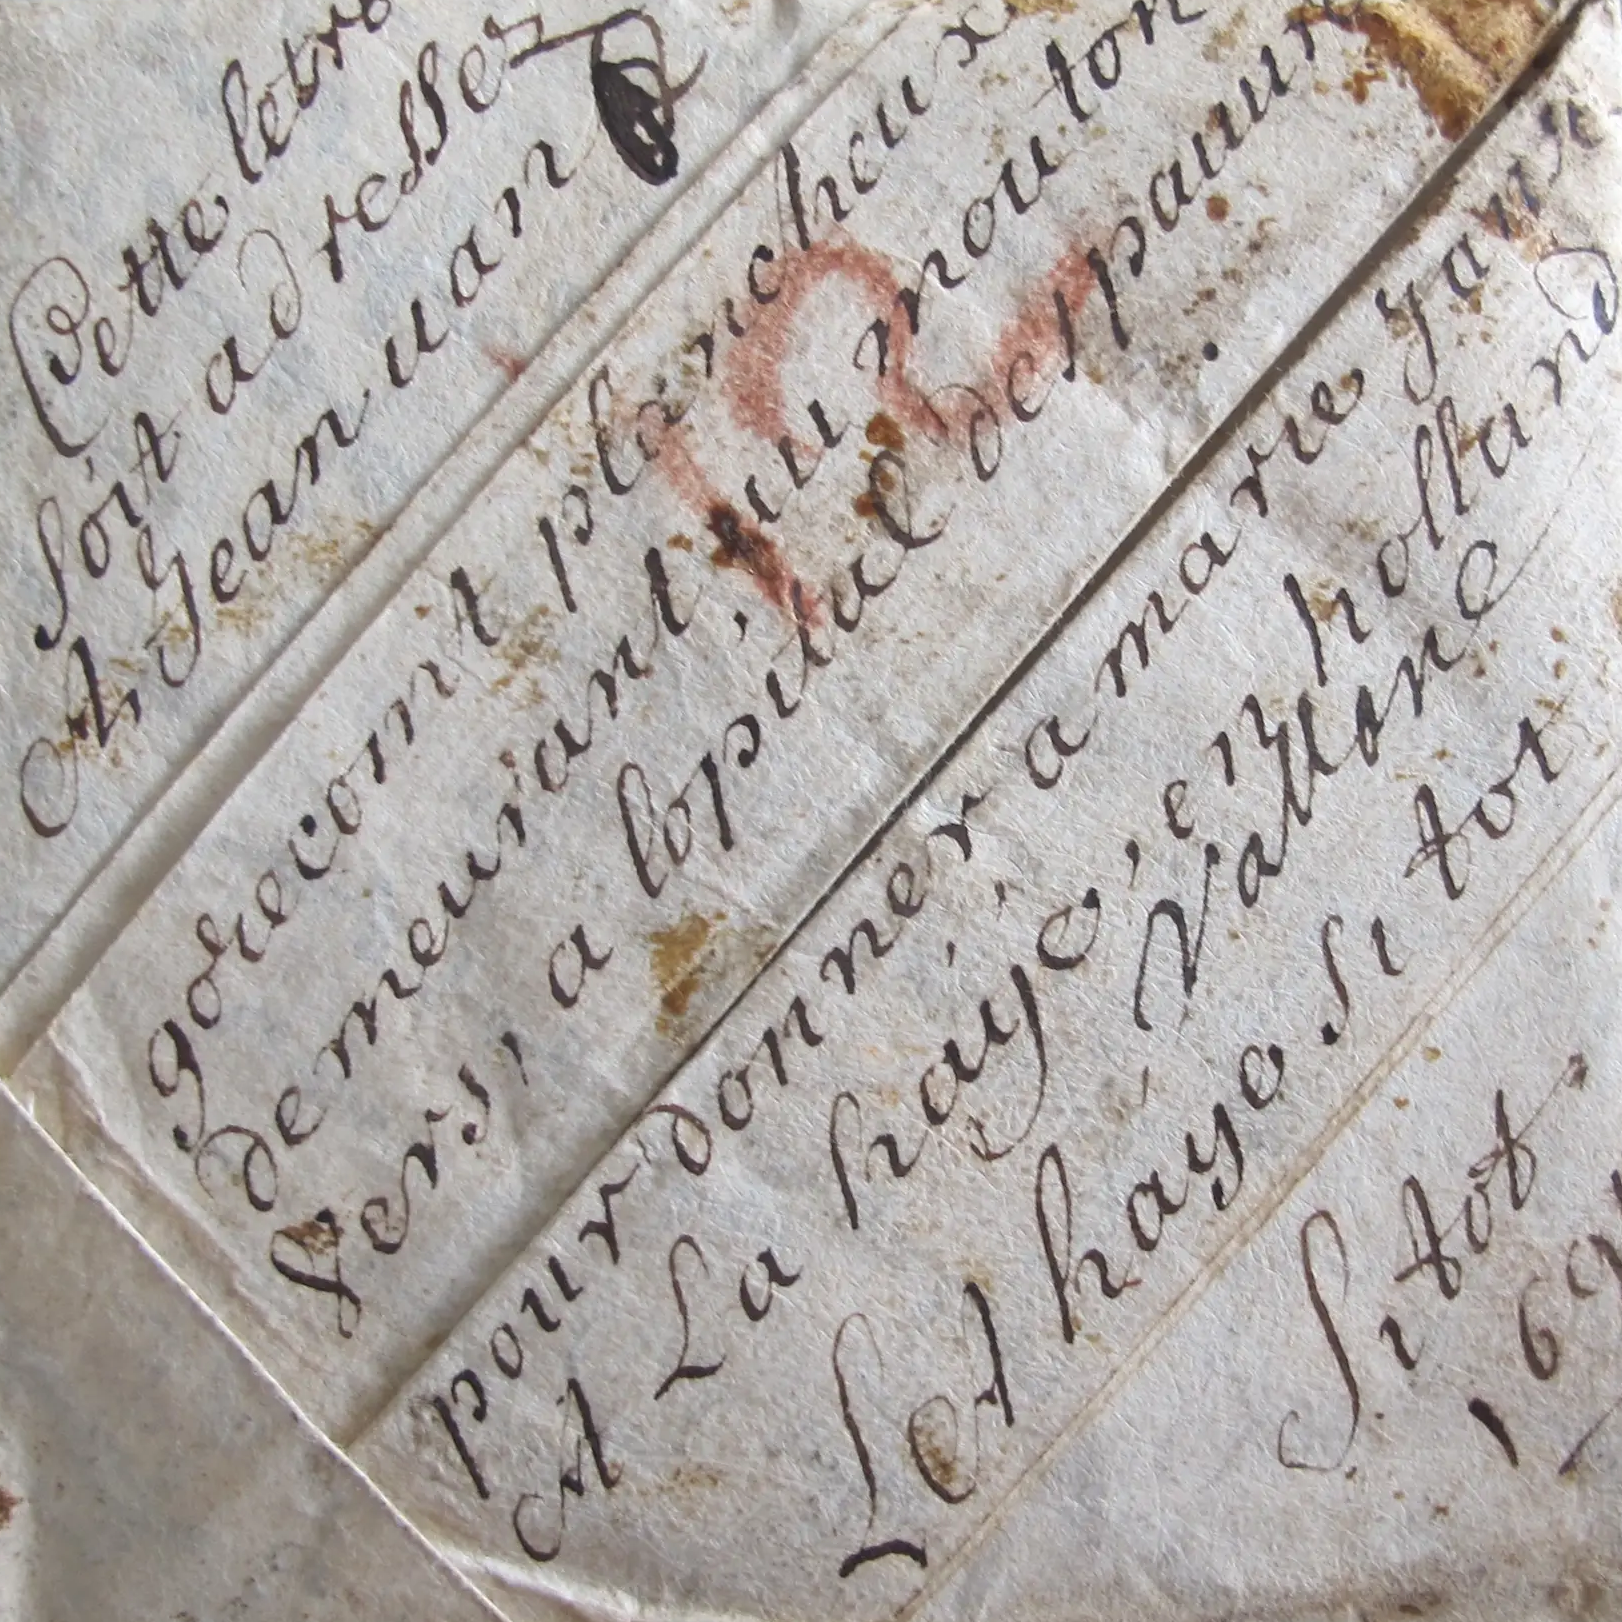 Cette letre
soit adresser
A, Jean uan
godrecomt plancheux
demeurant, uu mouton
vers, a lopital des pauure
pour donner a marie jans
A La haÿe, en holland
Let hayo si tot
Si tot
169